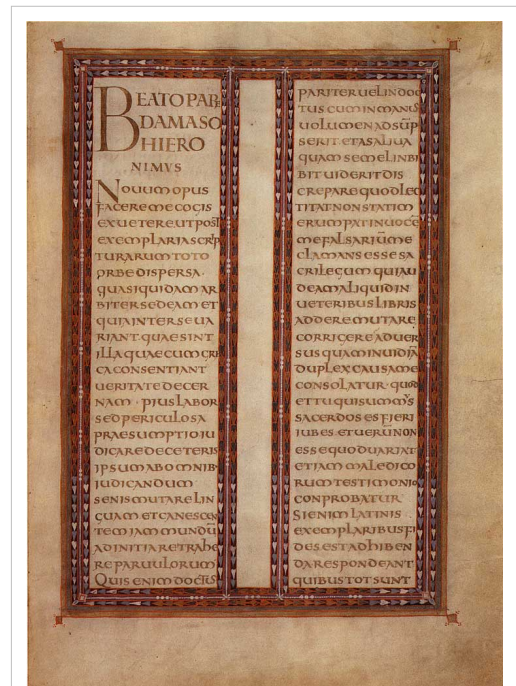 BEATO PAP
DAMASO
HIERO
NIMUS
NOUUM OPUS
FACERE ME COGIS
EXUETERE UT POST
EXEMPLARIA SCRIP
TURARUM TOTO
ORBE DISPERSA·
QUASI QUIDAM AR
BITER SEDEAM ET
QUIA INTER SE UA
RIANT· QUAE SINT
ILLA QUAE CUM GRE
CA CONSENTIANT
UERITATE DECER
NAM· PIUS LABOR
SED PERICULOSA
PRAESUMPTIO IU
DICARE DE CETERIS
IPSUM AB OMNIB·
IUDICANDUM
SENIS MUTARE LIN
GUAM ET CANESCEN
TEM IAM MUNDŪ
AD INITIA RETRAHE
RE PARUULORUM
QUIS ENIM DOCTUS
PARITER UEL INDOC
TUS CUM IN MANUS
UOLUMEN ADSŪP
SERIT ET A SALIUA
QUAM SEMEL INBI
BIT UIDERIT DIS
CREPARE QUOD LEC
TITAT NON STATIM
ERUMPAT IN UOCĒ
ME FALSARIŪ ME
CLAMANS ESSE SA
CRILEGUM QUI AU
DEAM ALIQUID IN
UETERIBUS LIBRIS
ADDERE MUTARE
CORRIGERE ADUER
SUS QUAM INUIDIĀ
DUPLEX CAUSA ME
CONSOLATUR· QUOD
ET TU QUI SUMMUS
SACERDOS ES FIERI
IUBES· ET UERŪ NON
ESSE QUOD UARIAT
ETIAM MALEDICO
RUM TESTIMONIO
CONPROBATUR
SI ENIM LATINIS
EXEMPLARIBUS FI
DES EST ADHIBEN
DA RESPONDEANT
QUIBUS TOT SUNT